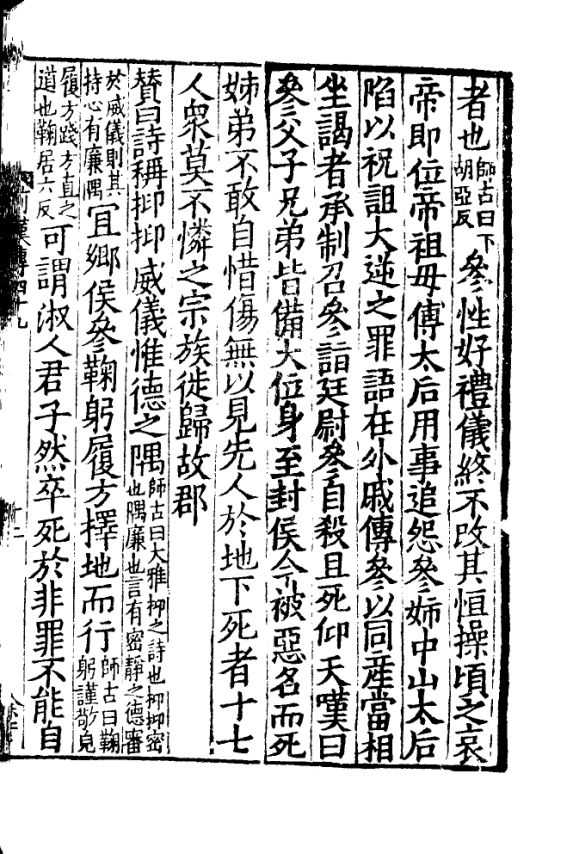 者也師古曰下胡亞反參性好禮儀終不改其恒操頃之哀
帝即位帝祖母傅太后用事追怨參姊中山太后
陷以祝詛大逆之罪語在外戚傳參以同産當相
坐謁者承制召參詣廷尉參自殺且死仰天嘆曰
參父子兄弟皆備大位身至封侯今被惡名而死
姊弟不敢自惜傷無以見先人於地下死者十七
人衆莫不憐之宗族徙歸故郡
賛曰詩稱抑抑威儀惟德之隅師古曰大雅抑之詩也抑抑密也隅廉也言有密靜之德審
於威儀則其持心有廉隅宜鄉侯參鞠躬履方擇地而行師古曰鞠躬謹敬皃
履方踐方直之道也鞠居六反可謂淑人君子然卒死於非罪不能自
前漢傳四十九